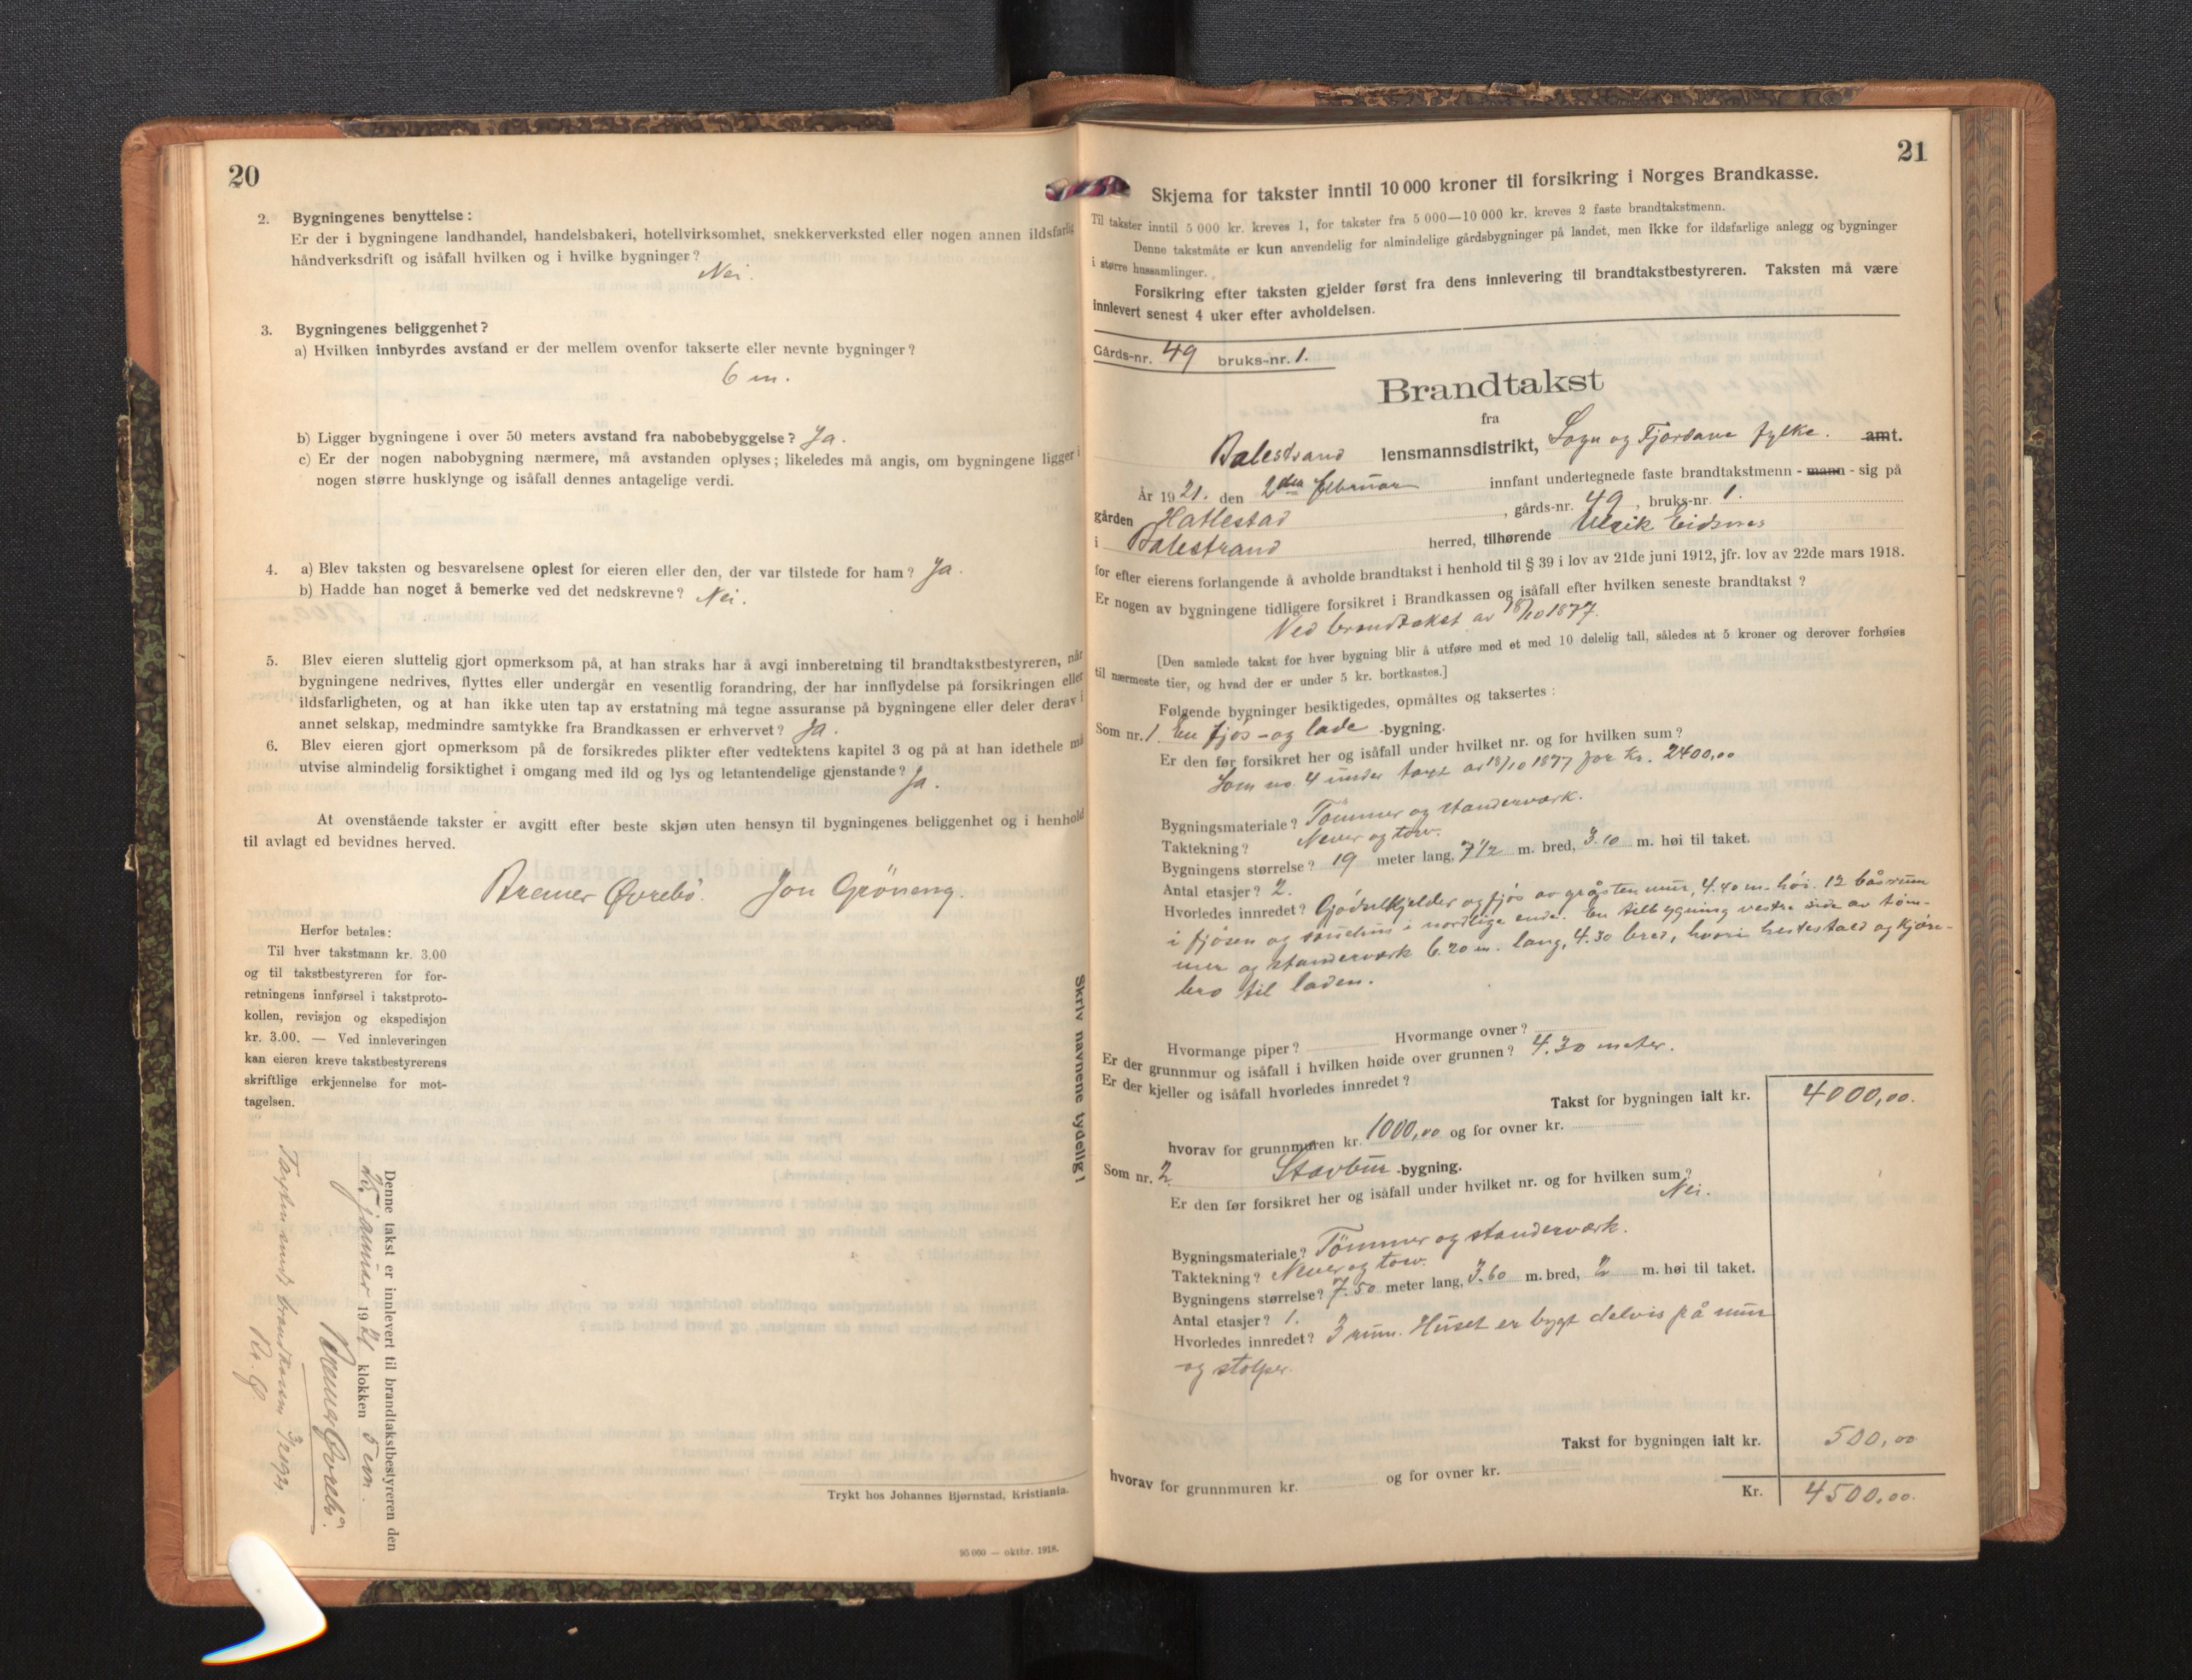 20
2. Bygningenes benyttelse:
Er der i bygningene landhandel, handelsbakeri, hotellvirksomhet, snekkerverksted eller nogen annen ildsfarlig
håndverksdrift og isåfall hvilken og i hvilke bygninger?
Nei.
3. Bygningenes beliggenhet?
a) Hvilken innbyrdes avstand er der mellem ovenfor takserte eller nevnte bygninger?
6 m.
b) Ligger bygningene i over 50 meters avstand fra nabobebyggelse? Ja.
c) Er der nogen nabobygning nærmere, må avstanden oplyses; likeledes må angis, om bygningene ligger i
nogen større husklynge og isåfall dennes antagelige verdi.
4. a) Blev taksten og besvarelsene oplest for eieren eller den, der var tilstede for ham? Ja.
b) Hadde han noget å bemerke ved det nedskrevne? Nei.
5. Blev eieren sluttelig gjort opmerksom på, at han straks har å avgi innberetning til brandtakstbestyreren, når
bygningene nedrives, flyttes eller undergår en vesentlig forandring, der har innflydelse på forsikringen eller
ildsfarligheten, og at han ikke uten tap av erstatning må tegne assuranse på bygningene eller deler derav i
annet selskap, medmindre samtykke fra Brandkassen er erhvervet? Ja.
6. Blev eieren gjort opmerksom på de forsikredes plikter efter vedtektens kapitel 3 og på at han idethele må
utvise almindelig forsiktighet i omgang med ild og lys og letantendelige gjenstande? Ja.
At ovenstående takster er avgitt efter beste skjøn uten hensyn til bygningenes beliggenhet og i henhold
til avlagt ed bevidnes herved.
Bremer Øvrebö. Jon Gröneng.
Herfor betales:
Til hver takstmann kr. 3.00
og til takstbestyreren for for-
retningens innførsel i takstproto-
kollen, revisjon og ekspedisjon
kr. 3.00. — Ved innleveringen
kan eieren kreve takstbestyrerens
skriftlige erkjennelse for mot-
tagelsen.
Denne takst er innlevert til brandtakstbestyreren den
25 januar 1921 klokken 5 em.
Bremer Øvrebö.
Taxten sendt brandkassen 3/2 1921
Skriv navnene tydelig!
Trykt hos Johannes Bjørnstad, Kristiania.
95 000 — oktbr. 1918.
21
Skjema for takster inntil 10 000 kroner til forsikring i Norges Brandkasse.
Til takster inntil 5 000 kr. kreves 1, for takster fra 5 000—10 000 kr. kreves 2 faste brandtakstmenn.
Denne takstmåte er kun anvendelig for almindelige gårdsbygninger på landet, men ikke for ildsfarlige anlegg og bygninger
i større hussamlinger.
Forsikring efter taksten gjelder først fra dens innlevering til brandtakstbestyreren. Taksten må være
innlevert senest 4 uker efter avholdelsen.
Gårds-nr. 49 bruks-nr. 1.
Brandtakst
fra
Balestrand lensmannsdistrikt, Sogn og Fjordane fylke. amt.
År 1921. den 2den februar innfant undertegnede faste brandtakstmenn - mann - sig på
gården Hatlestad, gårds-nr. 49, bruks-nr. 1.
i Balestrand herred, tilhørende Ulrik Eidsnes
for efter eierens forlangende å avholde brandtakst i henhold til § 39 i lov av 21de juni 1912, jfr. lov av 22de mars 1918.
Er nogen av bygningene tidligere forsikret i Brandkassen og isåfall efter hvilken seneste brandtakst?
Ved brandtakst av 18/10 1877.
[Den samlede takst for hver bygning blir å utføre med et med 10 delelig tall, således at 5 kroner og derover forhøies
til nærmeste tier, og hvad der er under 5 kr. bortkastes.]
Følgende bygninger besiktigedes, opmåltes og taksertes:
Som nr. 1 En fjös - og lade -bygning.
Er den før forsikret her og isåfall under hvilket nr. og for hvilken sum?
Som no. 4 under taxt av 18/10 1877 for kr. 2400,00
Bygningsmateriale? Tömmer og standerverk.
Taktekning? Never og torv.
Bygningens størrelse? 19 meter lang, 7 1/2 m. bred, 3.10 m. høi til taket.
Antal etasjer? 2.
Hvorledes innredet? Gjödselkjelder og fjös av gråstenmur, 4.40 m. höi. 12 båsrum
i fjösen og sauehus i nordlige ende. En tilbygning vestre side av töm-
mer og standerverk 6.20 m. lang, 4.30 bred, hvori hestestald og kjöre-
bro til laden.
Hvormange piper? Hvormange ovner?
Er der grunnmur og isåfall i hvilken høide over grunnen? 4.30 meter.
Er der kjeller og isåfall hvorledes innredet?
Takst for bygningen ialt kr. 4000,00.
hvorav for grunnmuren kr. 1000,00 og for ovner kr.
Som nr. 2 Stavbur -bygning.
Er den før forsikret her og isåfall under hvilket nr. og for hvilken sum?
Nei.
Bygningsmateriale? Tömmer og standerverk.
Taktekning? Never og torv.
Bygningens størrelse? 7.50 meter lang, 3.60 m. bred, 2 m. høi til taket.
Antal etasjer? 1.
Hvorledes innredet? 3 rum. Huset er bygt delvis på mur
og stolper.
Takst for bygningen ialt kr. 500,00
hvorav for grunnmuren kr. og for ovner kr.
Kr. 4500,00.